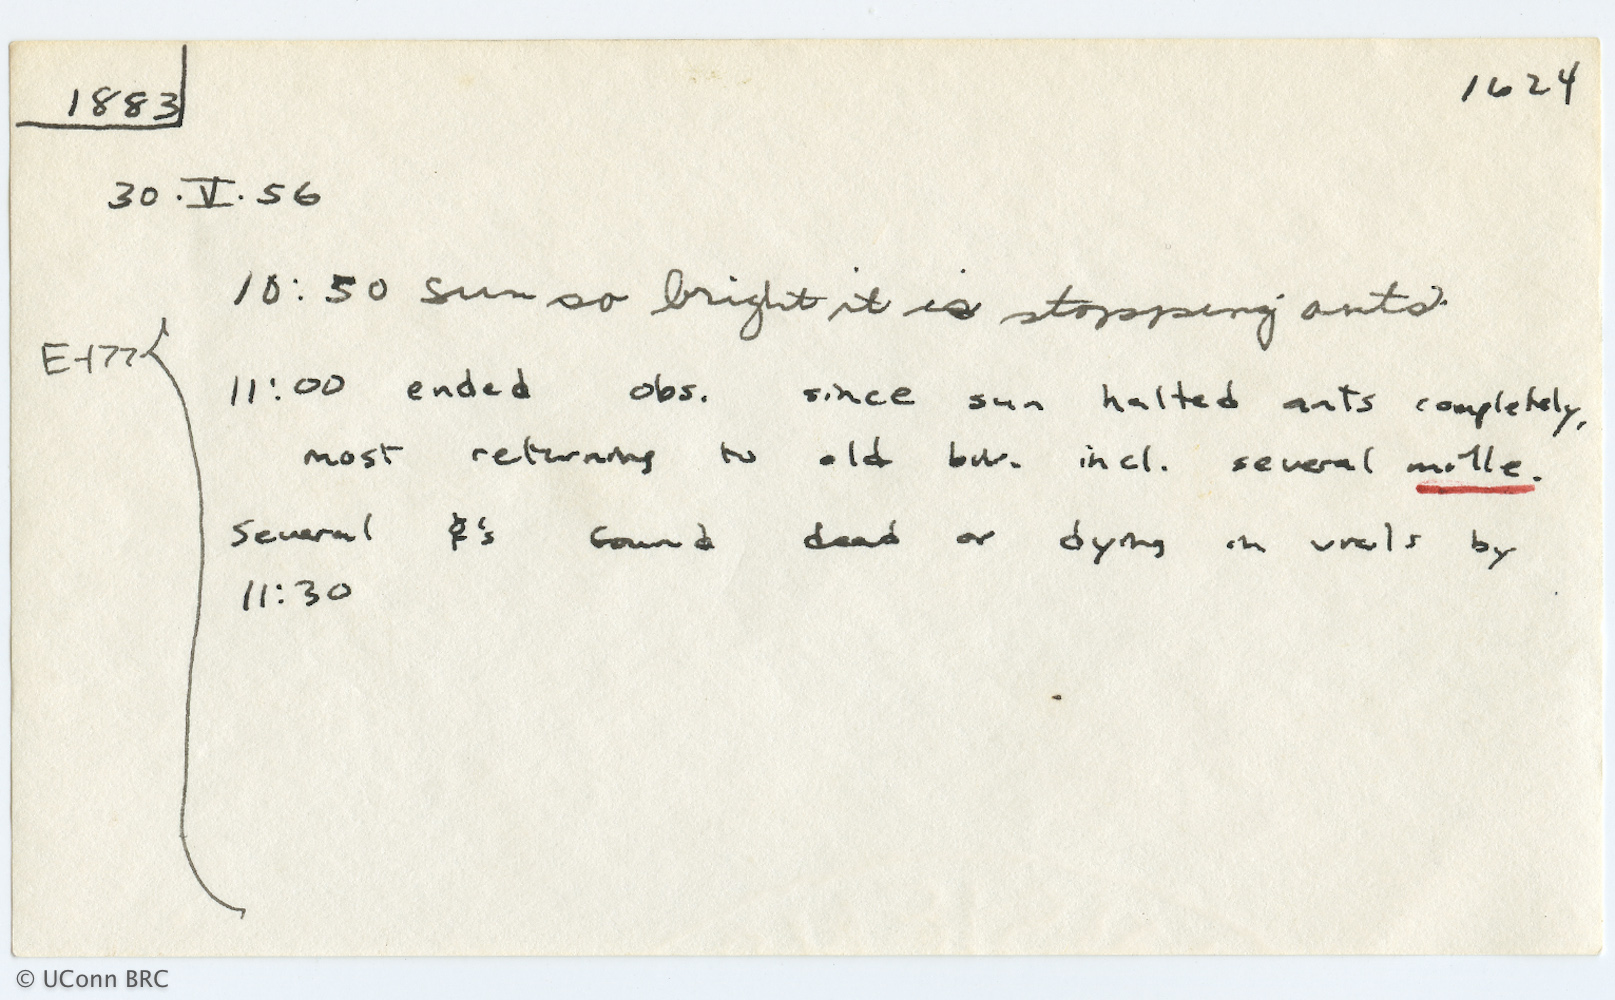 1883
1624
30.V.56
10:50 sun so bright it is stopping ants.
E-177
11:00 ended obs. since sun halted ants completely,
most returning to old biv. incl. several molle.
Several found dead or dying in vials by
11:30
© UConn BRC